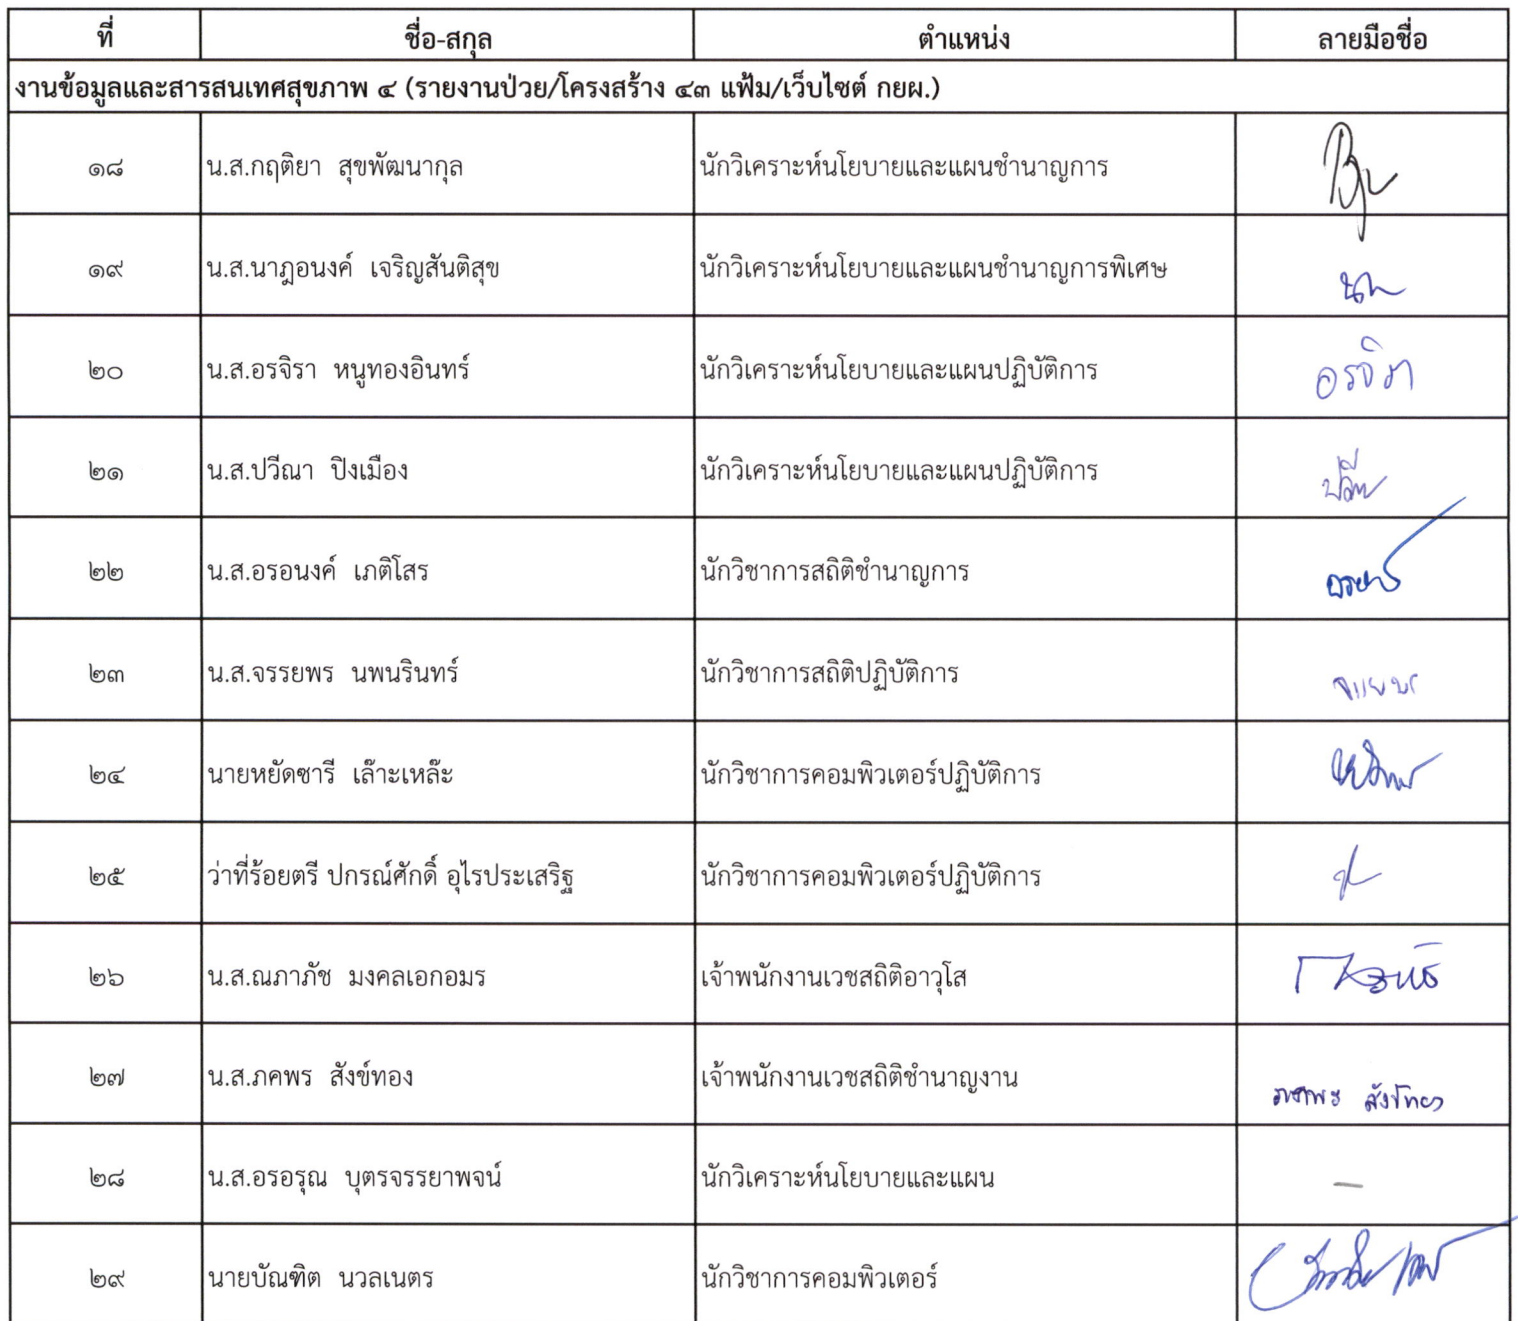 ที่ ชื่อ-สกุล ตำแหน่ง ลายมือชื่อ
งานข้อมูลและสารสนเทศสุขภาพ ๔ (รายงานป่วย/โครงสร้าง ๔๓ แฟ้ม/เว็บไซต์ กยผ.)
๑๘ น.ส.กฤติยา สุขพัฒนากุล นักวิเคราะห์นโยบายและแผนชำนาญการ
๑๙ น.ส.นาฎอนงค์ เจริญสันติสุข นักวิเคราะห์นโยบายและแผนชำนาญการพิเศษ
๒๐ น.ส.อรจิรา หนูทองอินทร์ นักวิเคราะห์นโยบายและแผนปฏิบัติการ อรจิรา
๒๑ น.ส.ปวีณา ปิงเมือง นักวิเคราะห์นโยบายและแผนปฏิบัติการ
๒๒ น.ส.อรอนงค์ เภติโสร นักวิชาการสถิติชำนาญการ
๒๓ น.ส.จรรยพร นพนรินทร์ นักวิชาการสถิติปฏิบัติการ จรรยพร
๒๔ นายหยัดซารี เล๊าะเหล๊ะ นักวิชาการคอมพิวเตอร์ปฏิบัติการ
๒๕ ว่าที่ร้อยตรี ปกรณ์ศักดิ์ อุไรประเสริฐ นักวิชาการคอมพิวเตอร์ปฏิบัติการ
๒๖ น.ส.ณภาภัช มงคลเอกอมร เจ้าพนักงานเวชสถิติอาวุโส
๒๗ น.ส.ภคพร สังข์ทอง เจ้าพนักงานเวชสถิติชำนาญงาน ภคพร สังข์ทอง
๒๘ น.ส.อรอรุณ บุตรจรรยาพจน์ นักวิเคราะห์นโยบายและแผน –
๒๙ นายบัณฑิต นวลเนตร นักวิชาการคอมพิวเตอร์